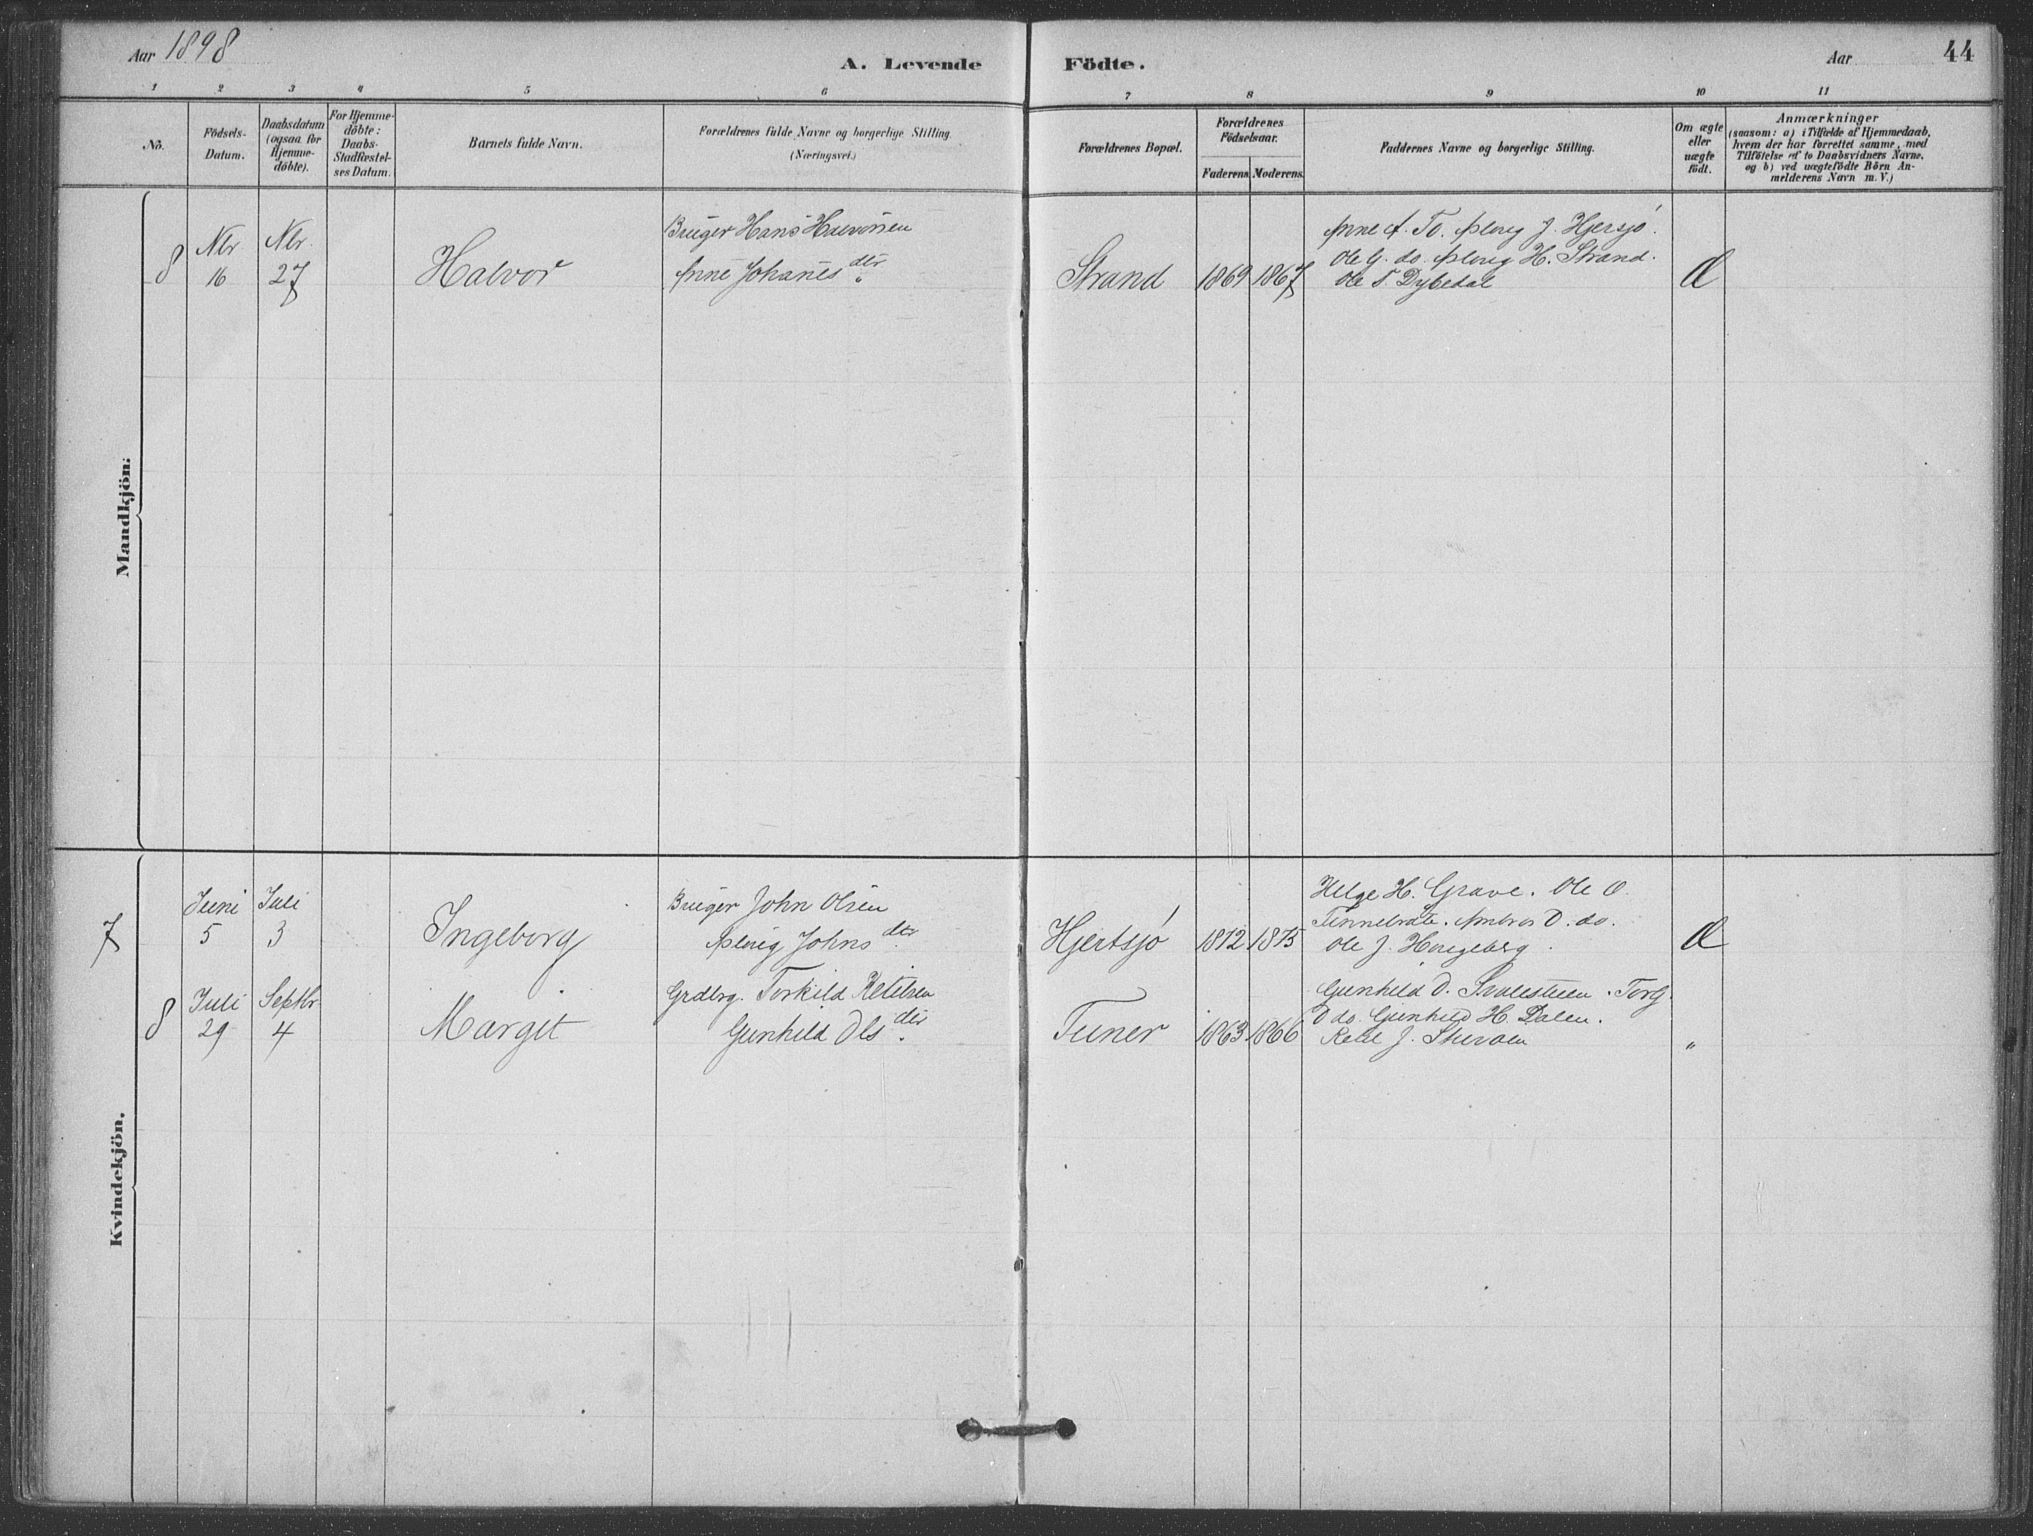 Aar 1898
A. Levende Födte.
Aar
44
1 2 3 4 5 6 7 8 9 10 11
No.
Födsels-
Datum.
Daabsdatum
(ogsaa for
Hjemme-
döbte).
For Hjemme-
döbte:
Daabs-
Stadfæstel-
ses Datum.
Barnets fulde Navn.
Forældrenes fulde Navne og borgerlige Stilling.
(Næringsvei.)
Forældrenes Bopæl.
Forældrenes
Födselsaar.
Faderens. Moderens.
Faddernes Navne og borgerlige Stilling.
Om ægte
eller
uægte
födt.
Anmærkninger
(saasom: a) i Tilfælde af Hjemmedaab,
hvem der har forrettet samme, med
Tilföielse af to Daabsvidners Navne,
og b) ved uægtefödte Börn An-
melderens Navn m. V.)
Mandkjön:
8
Nbr
16
Nbr.
27
Halvor
Bruger Hans Halvorsen
Anne Johanes dtr
Strand
1869 1867
Anne A. To. Aslaug J. Hjersjø.
Ole G. do. Aslaug H. Strand.
Ole T. Dybedal
Æ
Kvindekjön.
7
Juni
5
Juli
3
Ingeborg
Bruger John Olsen
Aslaug Johns dtr
Hjertsjø
1872 1875
Helge H. Grave. Ole O.
Tinnebrate. Ambros O. do.
Ole J. Haugeberg.
Æ
8
Juli
29
Septbr
4
Margit
Grdbrg. Torkild Ketilsen
Gunhild Ols dtr.
Tuner
1863 1866
Gunhild O. Svalesteen. Torg.
O do. Gunhild H. Dalen.
Ketil J.
"